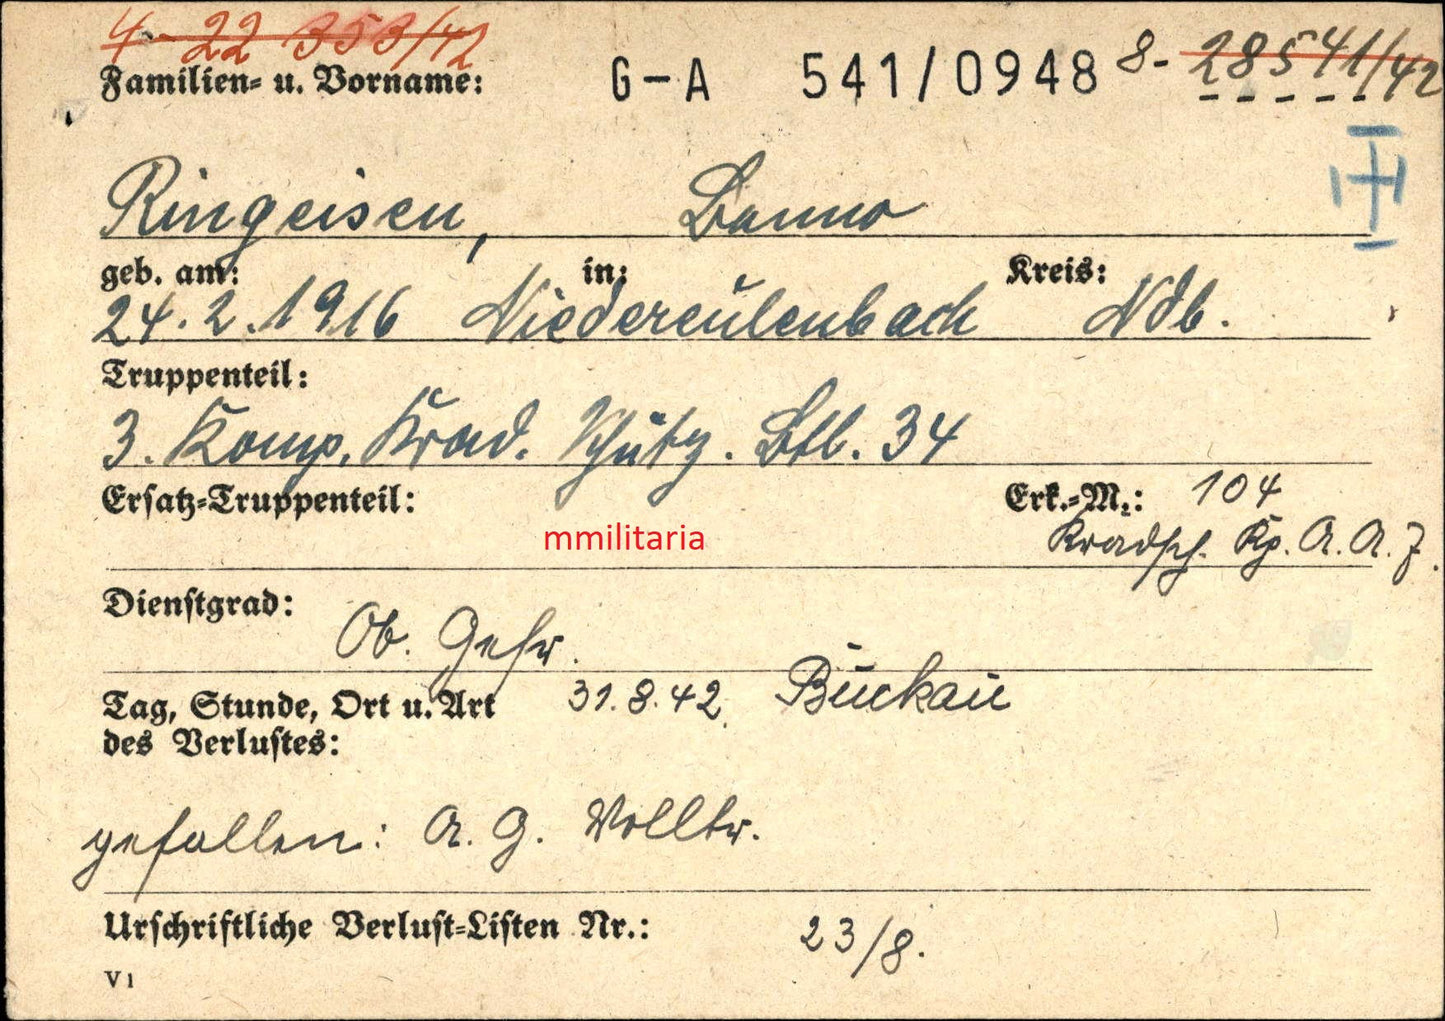 4-22 353/42
Familien- u. Vorname: G-A 541/0948 8-28541/42
Ringeisen, Benno
geb. am: in: Kreis:
24.2.1916 Niedereulenbach Ndb.
Truppenteil:
3. Komp. Krad. Schütz. Btl. 34
Ersatz-Truppenteil: Erk.-M.: 104
mmilitaria Kradsch. Kp. A. A. 7.
Dienstgrad:
Ob. Gefr.
Tag, Stunde, Ort u. Art 31.8.42. Buckau
des Verlustes:
gefallen: A. G. Volltr.
Urschriftliche Verlust-Listen Nr.: 23/8.
V1